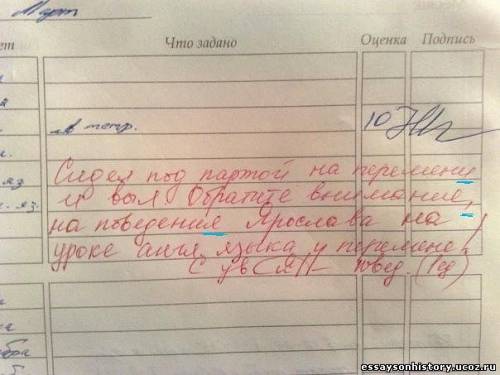 Март
ет Что задано Оценка Подпись
в тетр. 10
Сидел под партой на перемени
яз. и выл Обратите внимание,
. яз. на поведение Ярослава на
уроке англ. языка и перемене
С ув
бра
essaysonhistory.ucoz.ru